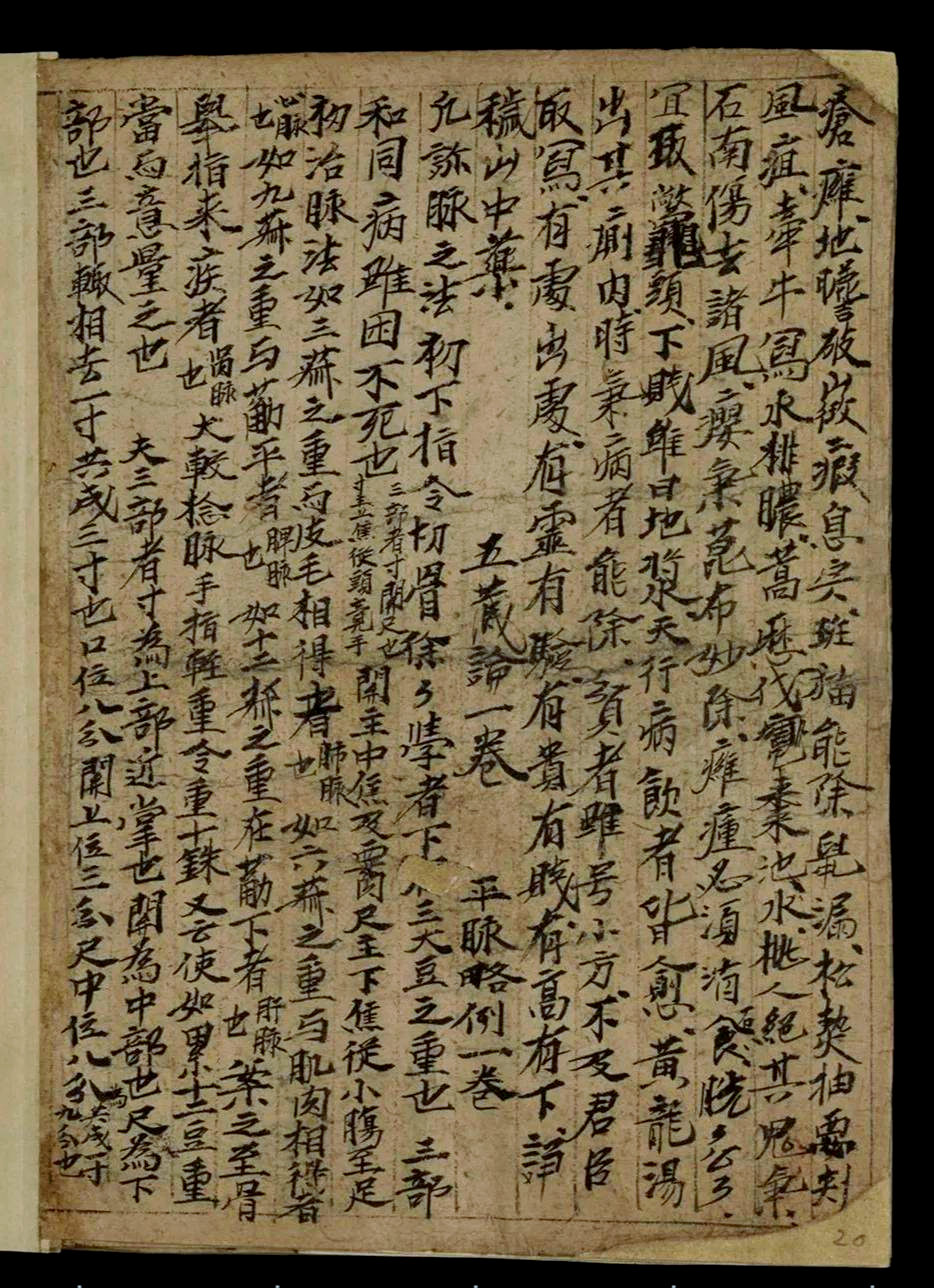 瘡癰地膽破癥瘕息宍斑猫能除鼠漏松
風疽牽牛寫水排膿蒿 池水桃人絕其鬼氣
石南傷去諸風癭 昆布妙除癰瘇必須消食
宜取鼈頭下賤雖曰地漿天行病飲者皆愈黃龍湯
出其廁內時 病者能除 者雖号小方不及君臣
取寫有處出處有靈有驗有貴有賤有高有下諍
穢山中藥 五蔵論一卷 平脉略例一卷
凡診脉之法初下指令切骨徐々舉者下 三大豆之重也三部
和同病雖困不死也三部者寸關尺也寸主上焦從頭竟手關主中焦及胃尺主下焦從小腸至足
初治脉法如三菽之重与皮毛相得者肺脉也如六菽之重与肌肉相得者
心脉也如九菽之重与筋平者脾脉也如十二菽之重在筋下者肝脉也案之至骨
舉指来疾者腎脉也大較捻脉手指輕重令重十銖又云使如累十二豆重
當自意量之也夫三部者寸為上部近掌也關為中部也尺為下
部也三部輙相去一寸共成三寸也口位八分關上位三分尺中位八分為共成一寸九分也
20